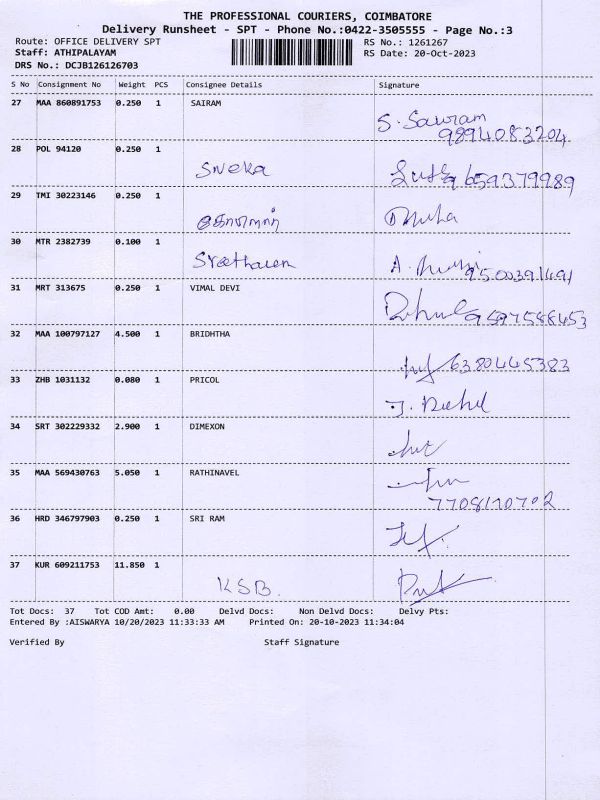 THE PROFESSIONAL COURIERS, COIMBATORE
Delivery Runsheet - SPT - Phone No.:0422-3505555 - Page No.:3
Route: OFFICE DELIVERY SPT RS No.: 1261267
Staff: ATHIPALAYAM RS Date: 20-Oct-2023
DRS No.: DCJB126126703
S No Consignment No Weight PCS Consignee Details Signature
27 MAA 860891753 0.250 1 SAIRAM
S. Sairam
9894083204
28 POL 94120 0.250 1
Sneka 9659379989
29 TMI 30223146 0.250 1
30 MTR 2382739 0.100 1
Sreetharen A. 9500391491
31 MRT 313675 0.250 1 VIMAL DEVI
9597588453
32 MAA 100797127 4.500 1 BRIDHTHA
6380445383
33 ZHB 1031132 0.080 1 PRICOL
34 SRT 302229332 2.900 1 DIMEXON
35 MAA 569430763 5.050 1 RATHINAVEL
7708170702
36 HRD 346797903 0.250 1 SRI RAM
37 KUR 609211753 11.850 1
KSB.
Tot Docs: 37 Tot COD Amt: 0.00 Delvd Docs: Non Delvd Docs: Delvy Pts:
Entered By :AISWARYA 10/20/2023 11:33:33 AM Printed On: 20-10-2023 11:34:04
Verified By Staff Signature